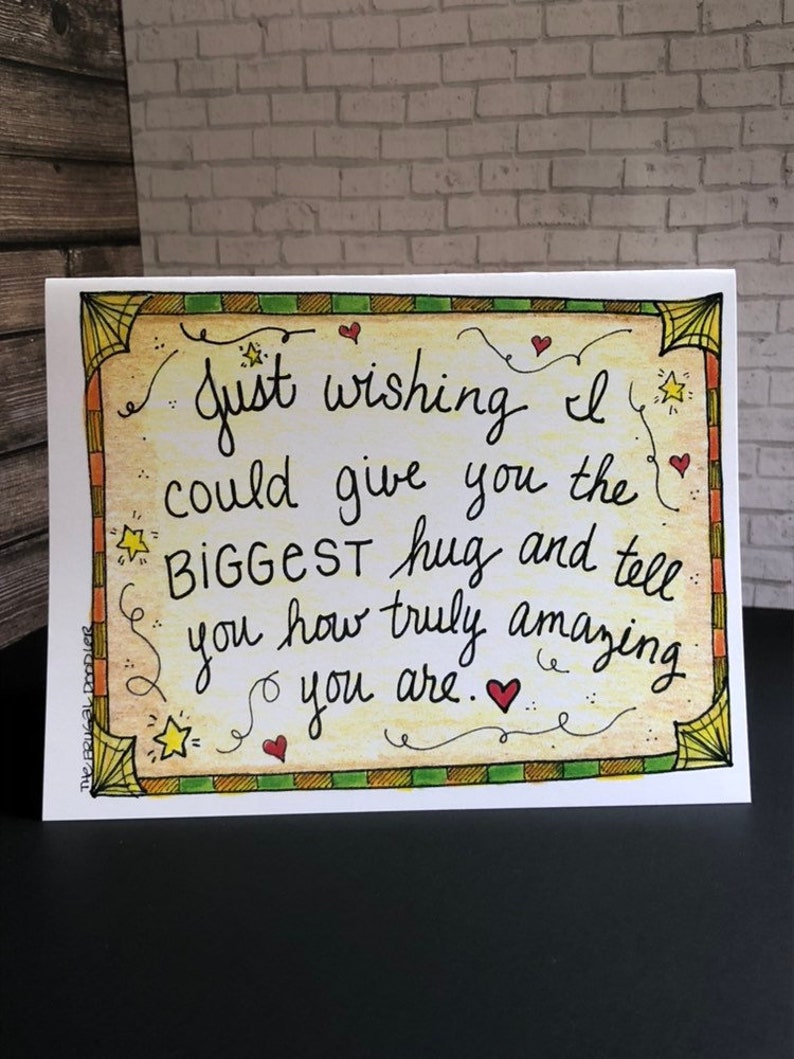 Just wishing I
could give you the
BiGGeST hug and tell
you how truly amazing
you are.
THE FRUGAL DOODLER